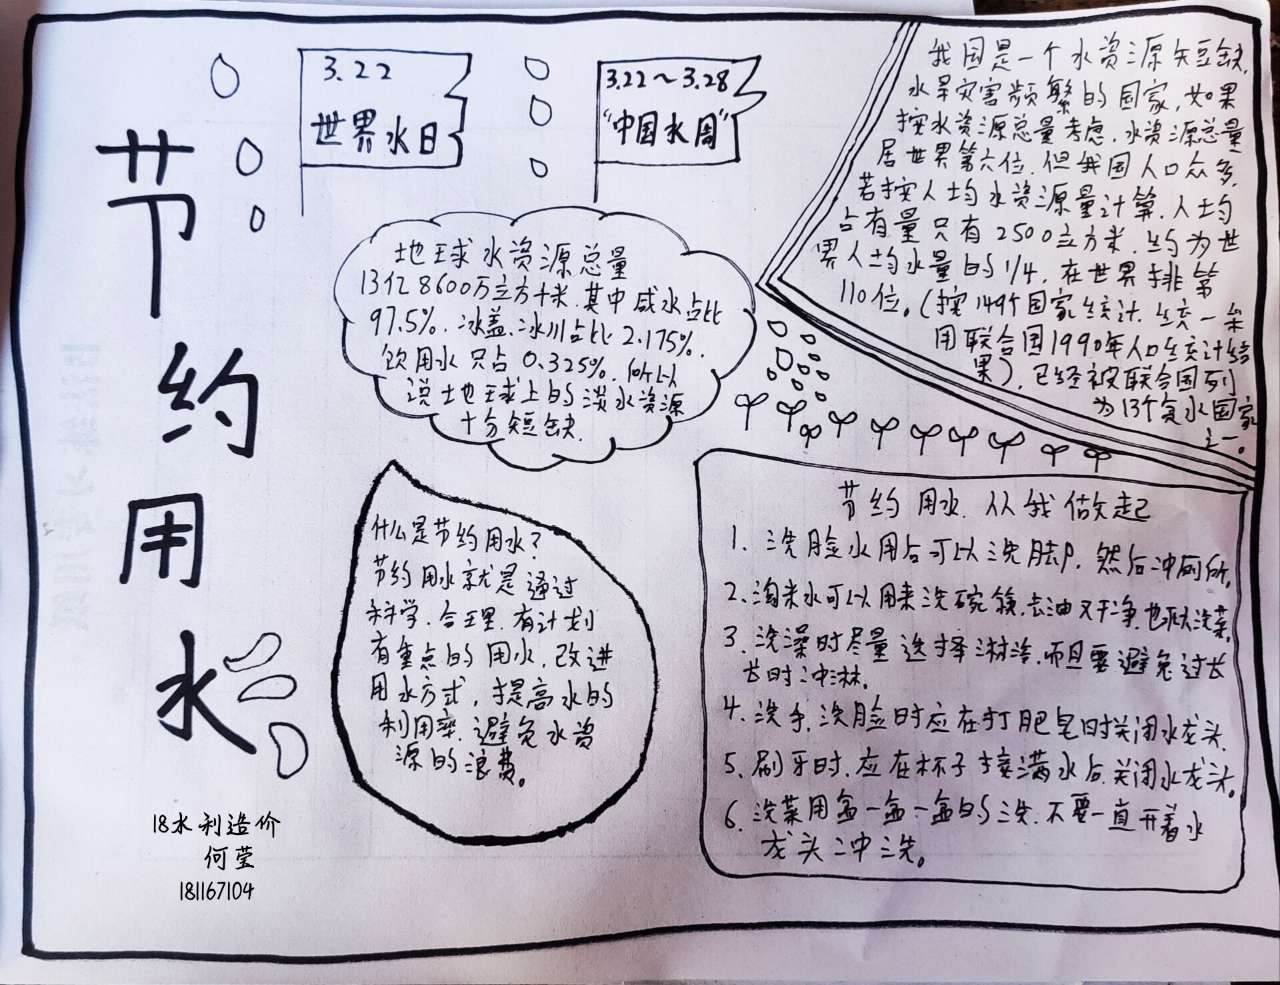 节
约
用
水
3.22
世界水日
3.22～3.28
“中国水周”
我国是一个水资源短缺,
水旱灾害频繁的国家,如果
按水资源总量考虑,水资源总量
居世界第六位,但我国人口众多,
若按人均水资源量计算,人均
占有量只有2500立方米,约为世
界人均水量的1/4,在世界排第
110位。(按149个国家统计,统一采
用联合国1990年人口统计结
果),已经被联合国列
为13个贫水国家
之一。
地球水资源总量
13亿8600万立方千米,其中咸水占比
97.5%,冰盖、冰川占比2.175%,
饮用水只占0.325%,所以
说地球上的淡水资源
十分短缺.
什么是节约用水?
节约用水就是通过
科学、合理、有计划
有重点的用水,改进
用水方式,提高水的
利用率,避免水资
源的浪费。
节约用水,从我做起
1、洗脸水用后可以洗脚,然后冲厕所。
2、淘米水可以用来洗碗筷,去油又干净,也可以洗菜。
3、洗澡时尽量选择淋浴,而且要避免过长
长时冲淋。
4、洗手、洗脸时应在打肥皂时关闭水龙头.
5、刷牙时,应在杯子接满水后,关闭水龙头。
6、洗菜用盆一盆一盆的洗,不要一直开着水
龙头冲洗。
18水利造价
何莹
181167104